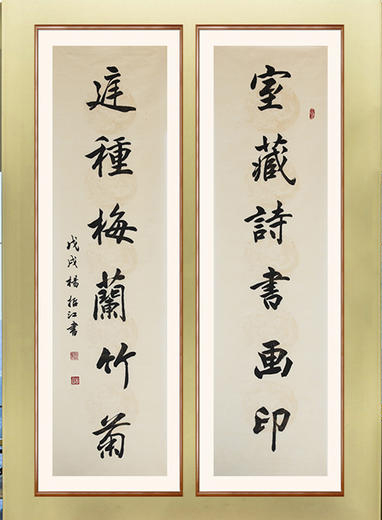 室藏詩書画印
庭種梅蘭竹菊
戊戌 楊拓江書